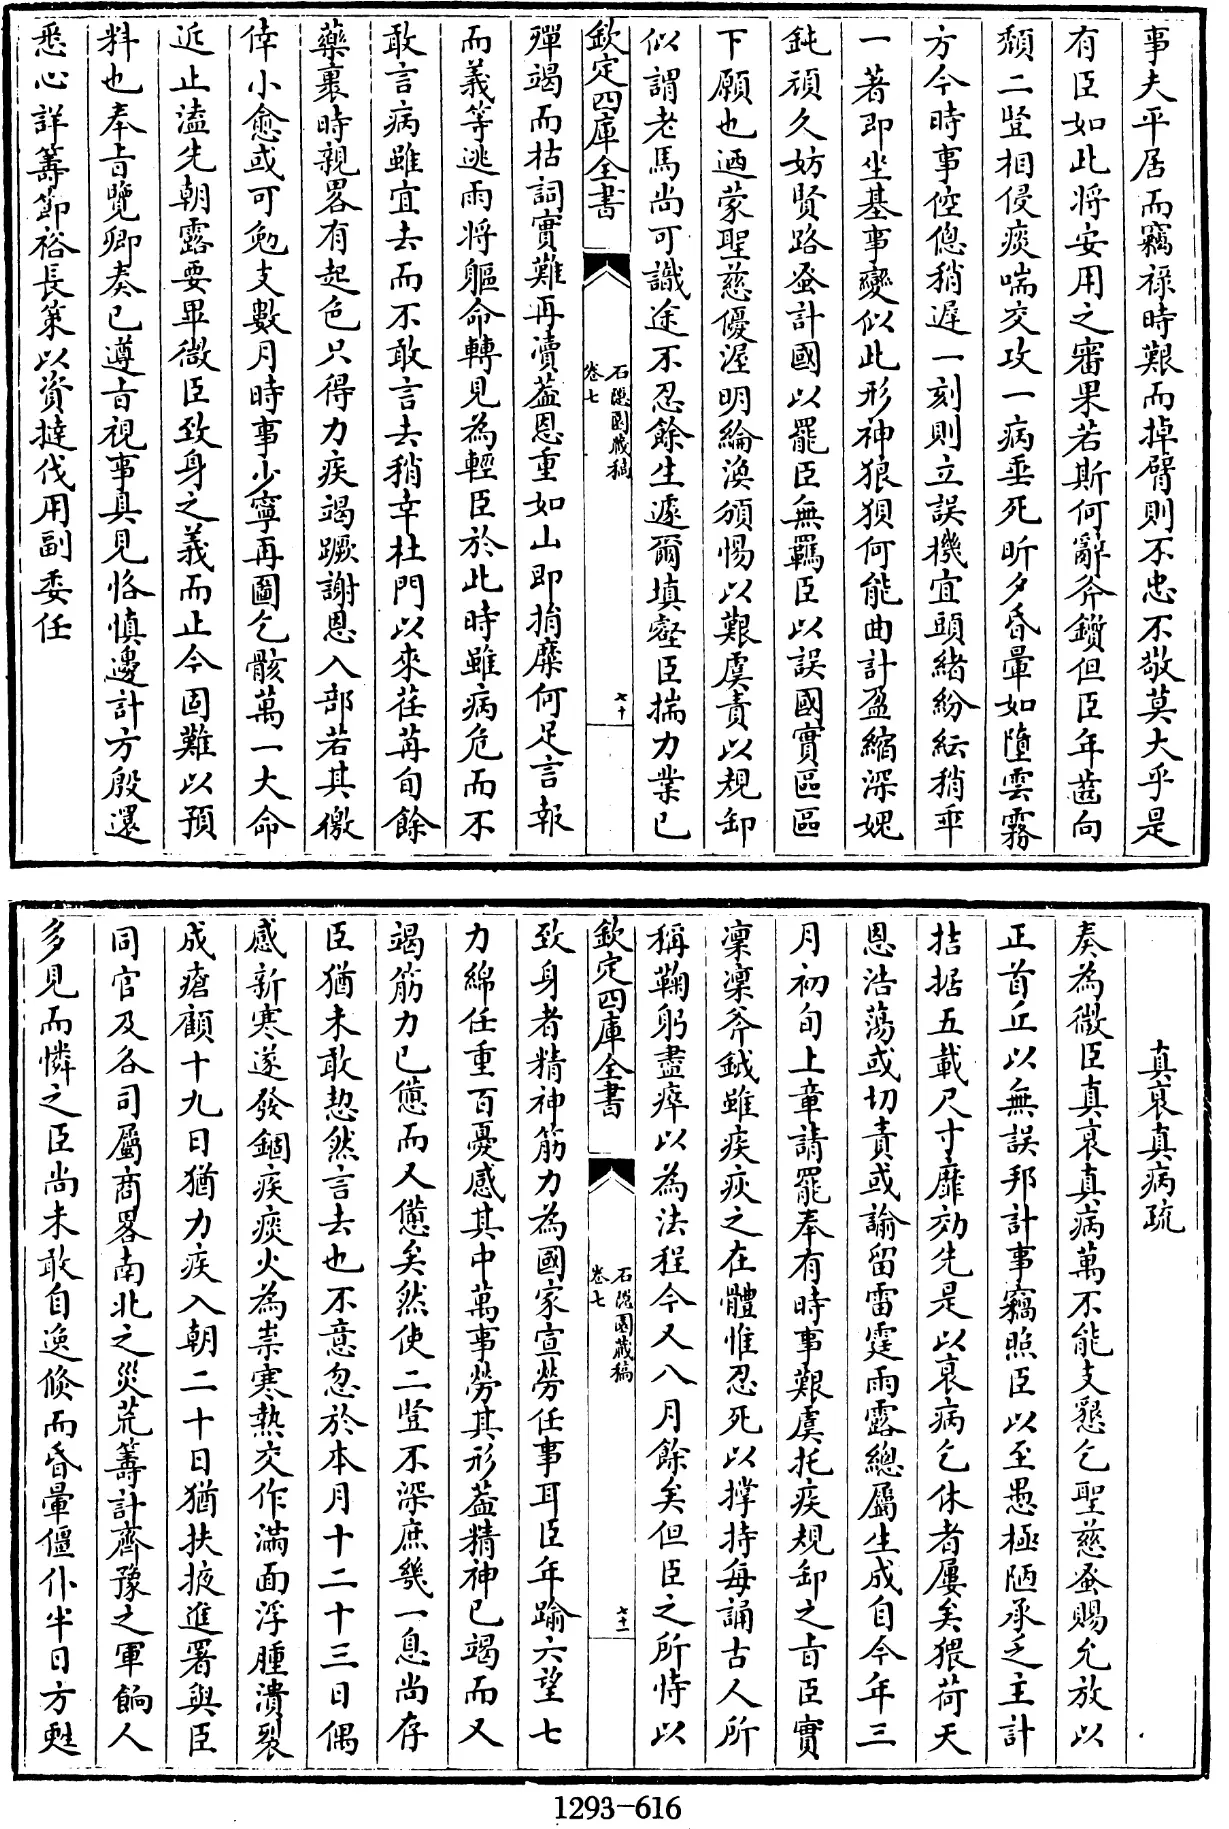 事夫平居而竊祿時艱而掉臂則不忠不敬莫大乎是
有臣如此將安用之審果若斯何辭斧鑕但臣年齒向
頹二豎相侵痰喘交攻一病垂死昕夕昏暈如墮雲霧
方今時事倥傯稍遲一刻則立誤機宜頭緒紛紜稍乖
一著即坐基事變似此形神狼狽何能曲計盈縮深媿
鈍頑久妨賢路蚤計國以罷臣無羈臣以誤國實區區
下願也迺蒙聖慈優渥明綸渙頒惕以艱虞責以規卸
似謂老馬尚可識途不忍餘生遽爾填壑臣揣力業已
欽定四庫全書
石隱園藏稿
卷七
七十
殫竭而枯詞實難再瀆葢恩重如山即捐糜何足言報
而義等逃雨將軀命轉見為輕臣於此時雖病危而不
敢言病雖宜去而不敢言去稍幸杜門以來荏苒旬餘
藥裹時親畧有起色只得力疾竭蹶謝恩入部若其徼
倖小愈或可勉支數月時事少寧再圖乞骸萬一大命
近止溘先朝露要畢微臣致身之義而止今固難以預
料也奉旨覽卿奏已遵旨視事具見恪慎邊計方殷還
悉心詳籌節裕長策以資撻伐用副委任
真哀真病疏
奏為微臣真哀真病萬不能支懇乞聖慈蚤賜允放以
正首丘以無誤邦計事竊照臣以至愚極陋承乏主計
拮据五載尺寸靡効先是以衰病乞休者屢矣猥荷天
恩浩蕩或切責或諭留雷霆雨露總屬生成自今年三
月初旬上章請罷奉有時事艱虞托疾規卸之旨臣實
凜凜斧鉞雖疾疢之在體惟忍死以撐持每誦古人所
稱鞠躬盡瘁以為法程今又八月餘矣但臣之所恃以
欽定四庫全書
石隱園藏稿
卷七
七十一
致身者精神筋力為國家宣勞任事耳臣年踰六望七
力綿任重百憂感其中萬事勞其形葢精神已竭而又
竭筋力已憊而又憊矣然使二豎不深庶幾一息尚存
臣猶未敢恝然言去也不意忽於本月十二十三日偶
感新寒遂發錮疾痰火為祟寒熱交作滿面浮腫潰裂
成瘡顧十九日猶力疾入朝二十日猶扶掖進署與臣
同官及各司屬商畧南北之災荒籌計齊豫之軍餉人
多見而憐之臣尚未敢自逸倐而昏暈僵仆半日方甦
1293-616